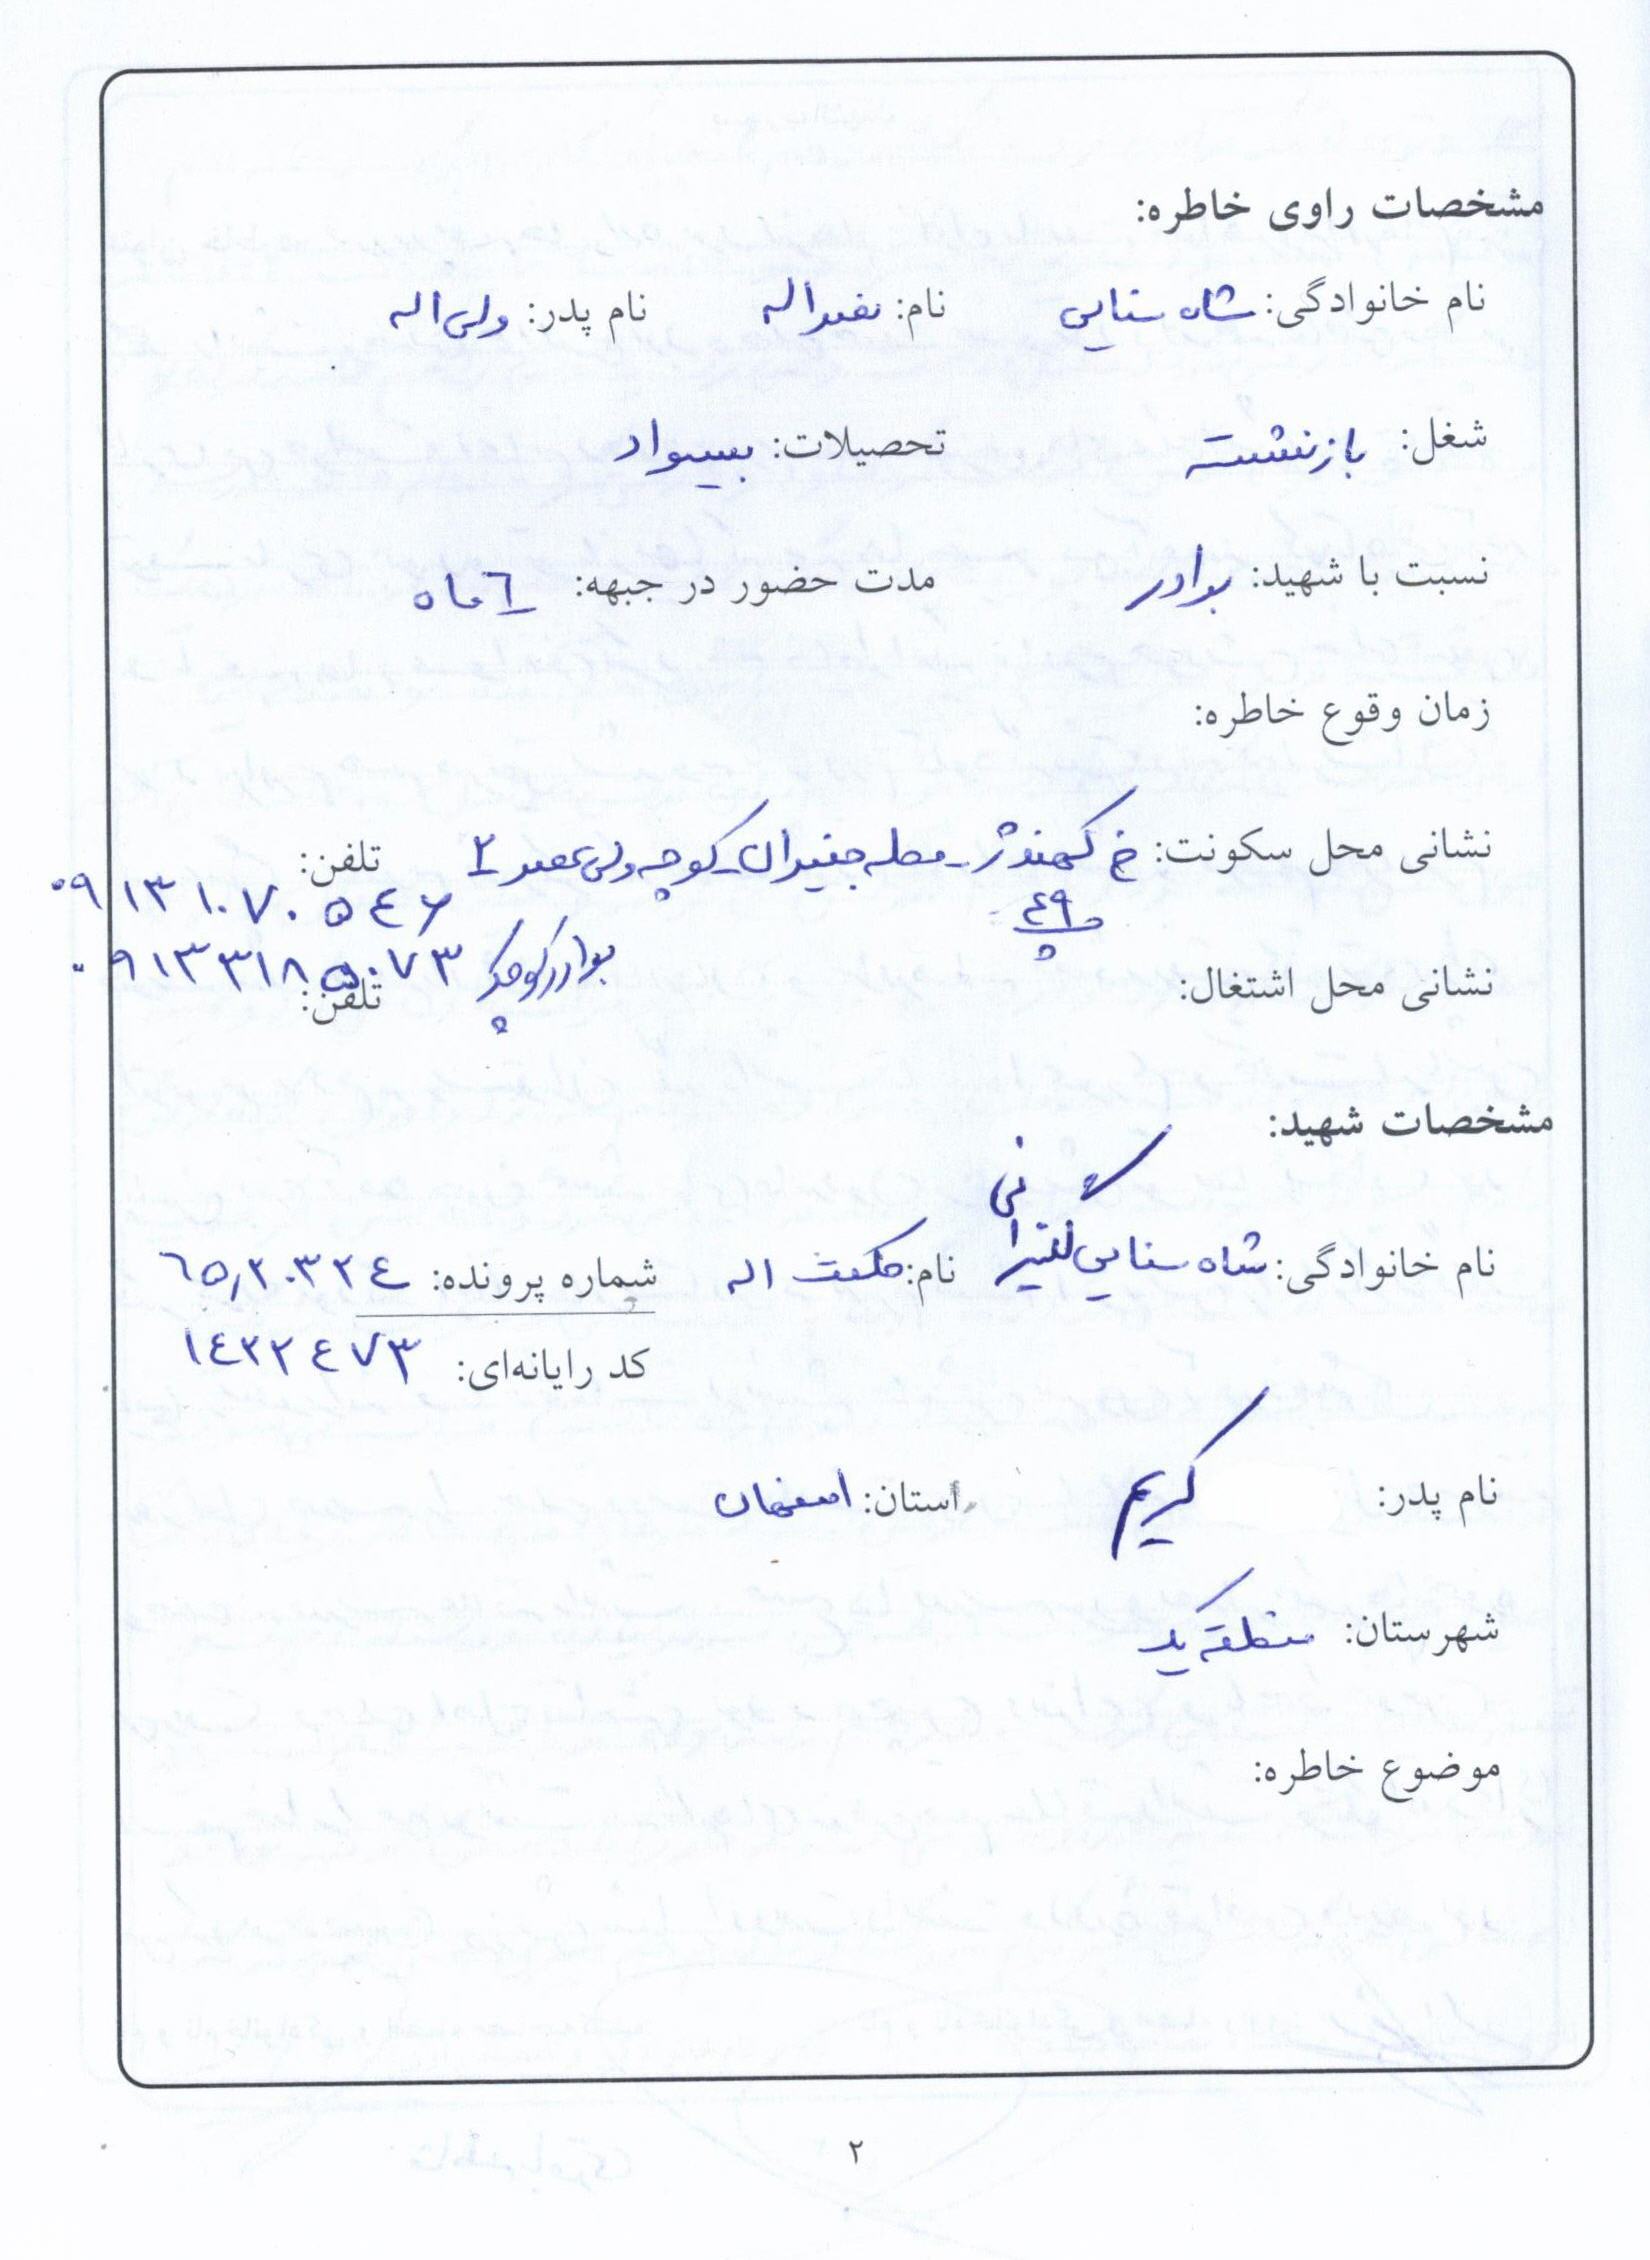 مشخصات راوی خاطره:
نام خانوادگی: شاه سنایی نام: نصراله نام پدر: ولی اله
شغل: بازنشسته تحصیلات: بیسواد
نسبت با شهید: برادر مدت حضور در جبهه: ٦ ماه
زمان وقوع خاطره:
نشانی محل سکونت: خ کهندژ - محله جنیران - کوچه ولی عصر ۲ تلفن:
۰۹۱۳۱۰۷۰۵٤۶
پ ٤٩
برادر کوچک ۰۹۱۳۳۱۸۵۰۷۳
نشانی محل اشتغال: تلفن:
مشخصات شهید:
نام خانوادگی: شاه سنایی نام: حکمت اله شماره پرونده: ٦۵٫۲۰۳۲٤
کد رایانه‌ای: ۱٤۲۲٤۷۳
نام پدر: کریم استان: اصفهان
شهرستان: منطقه یک
موضوع خاطره:
۲